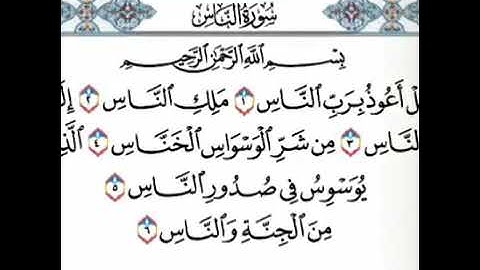 سُورَةُ النَّاسِ
بِسْمِ ٱللَّهِ ٱلرَّحْمَٰنِ ٱلرَّحِيمِ
لْ أَعُوذُ بِرَبِّ ٱلنَّاسِ ١ مَلِكِ ٱلنَّاسِ ٢ إِلَ
ٱلنَّاسِ ٣ مِن شَرِّ ٱلْوَسْوَاسِ ٱلْخَنَّاسِ ٤ ٱلَّذِ
يُوَسْوِسُ فِى صُدُورِ ٱلنَّاسِ ٥
مِنَ ٱلْجِنَّةِ وَٱلنَّاسِ ٦